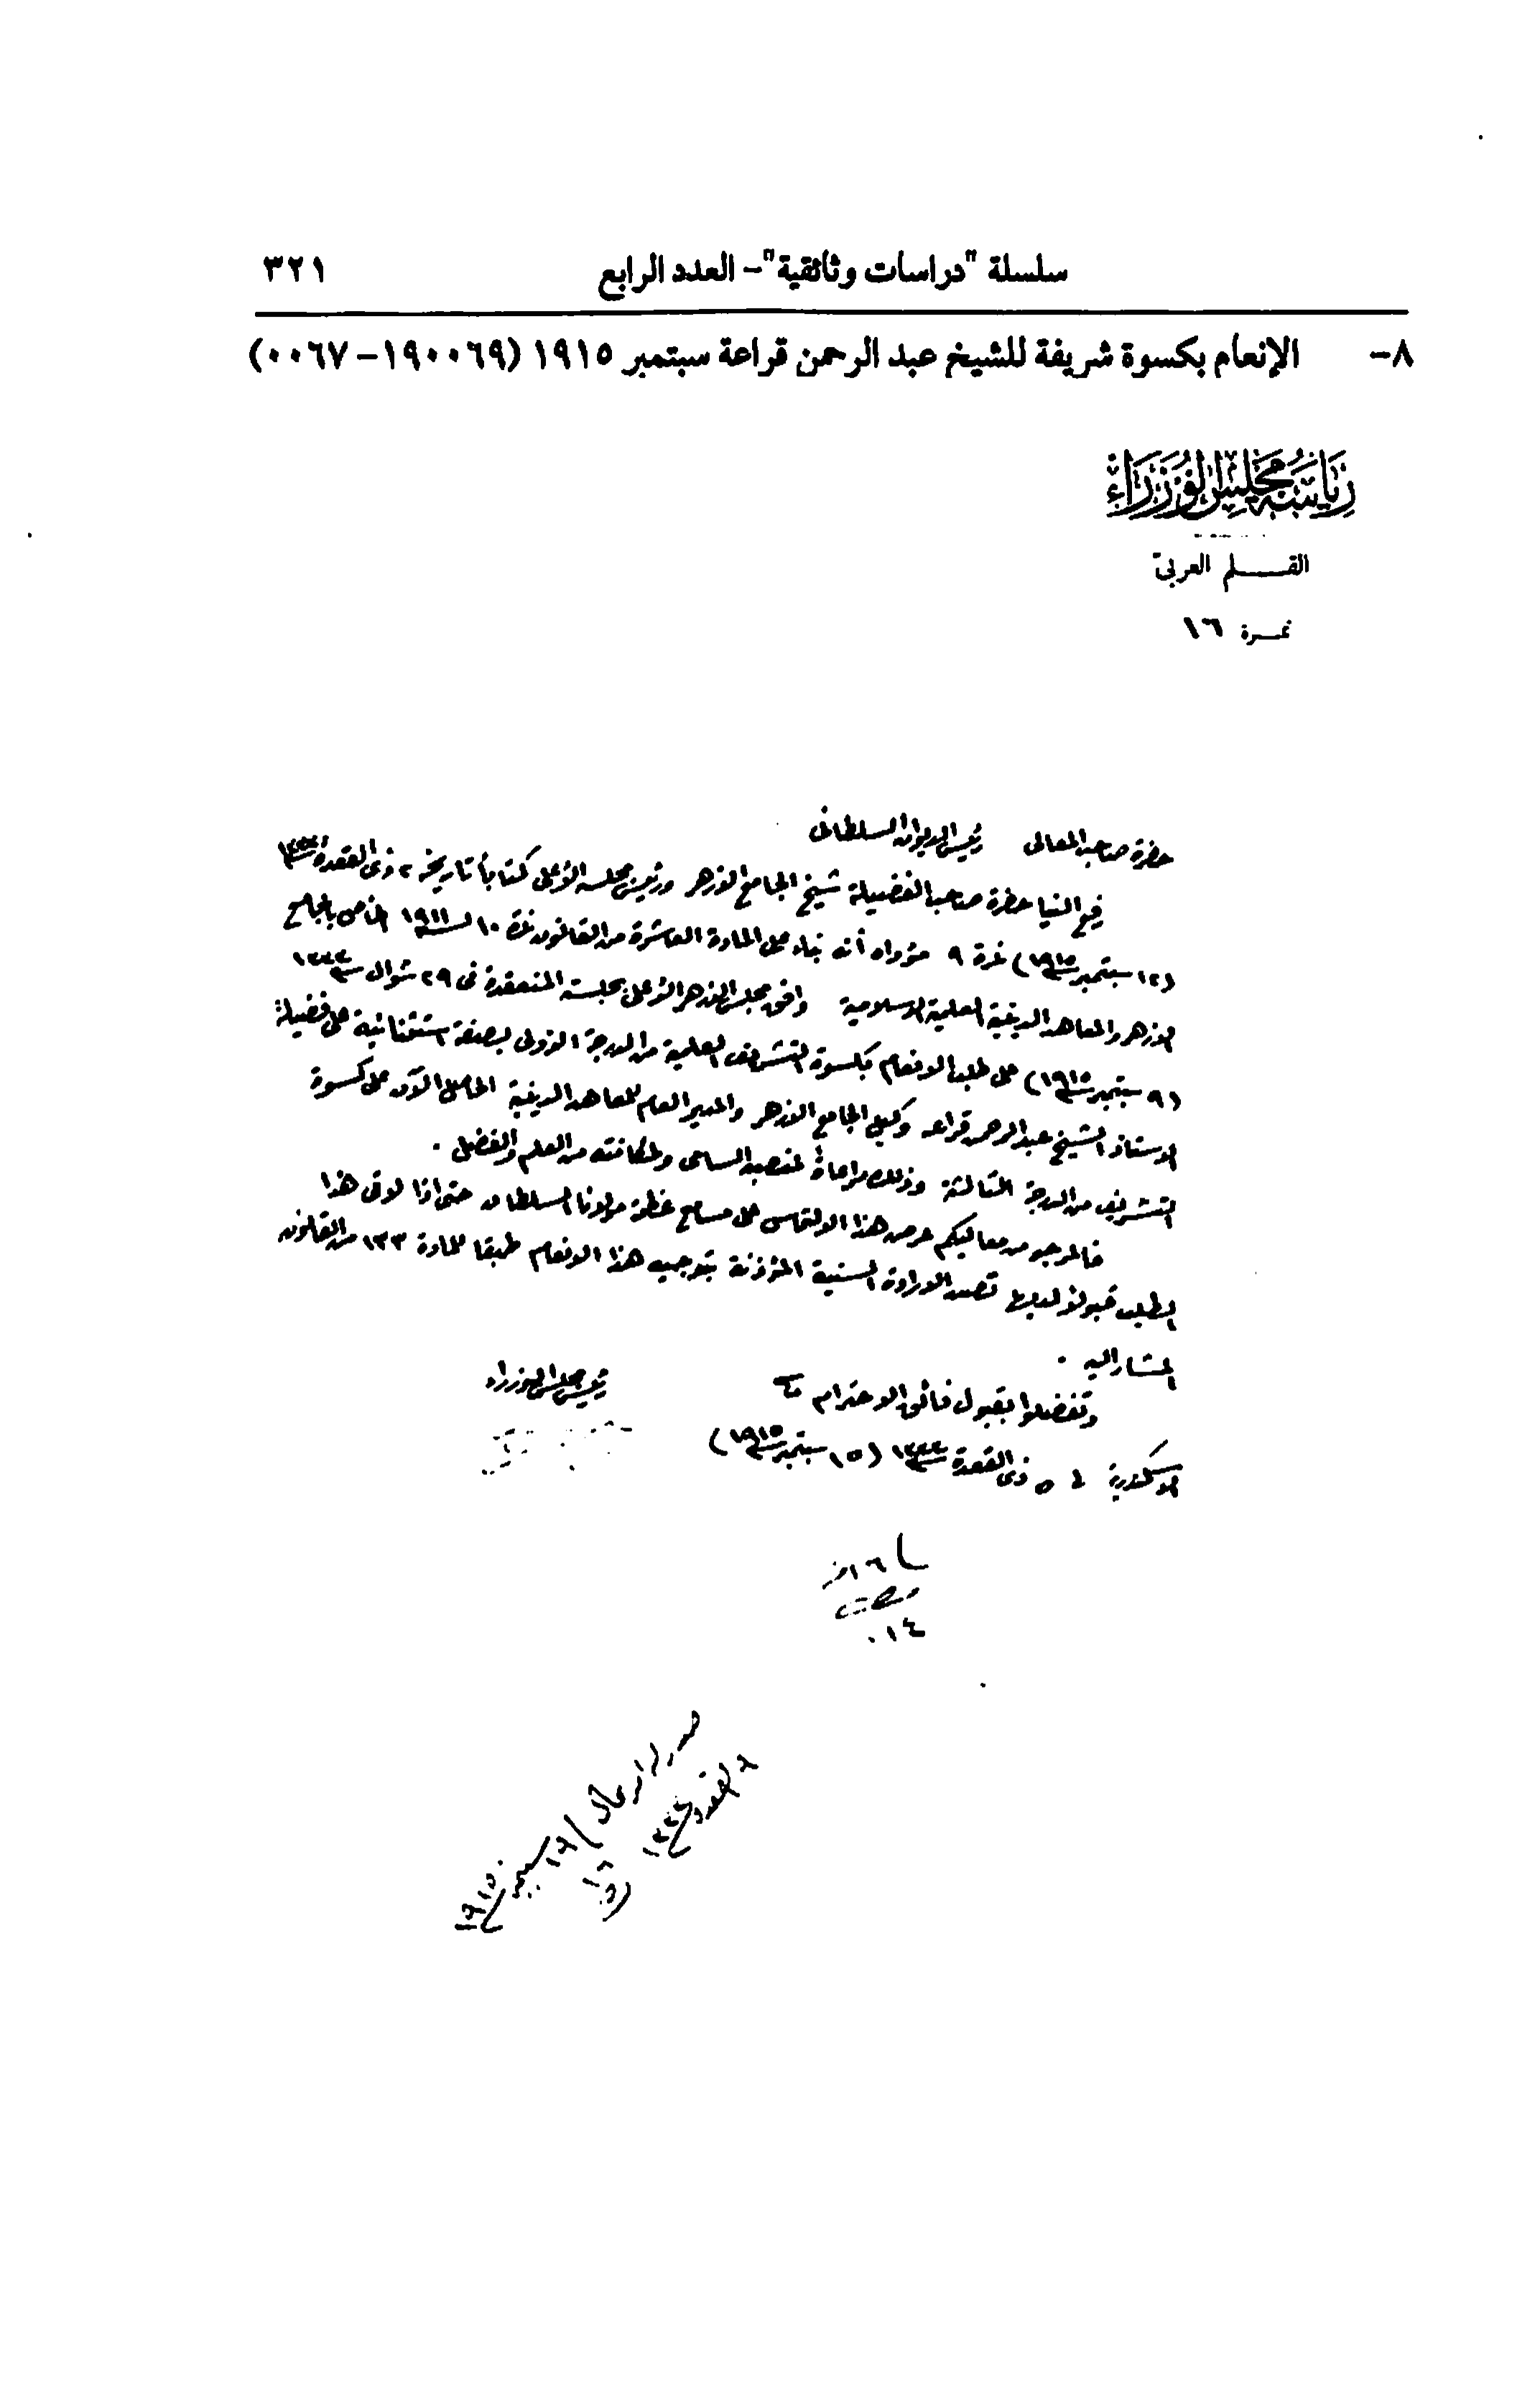 سلسلة "دراسات وثائقية"- العدد الرابع ٣٢١
٨- الإنعام بكسوة شريفة للشيخ عبد الرحمن قراعة سبتمبر ١٩١٥ (١٩٠٠٦٩-٠٠٦٧)
رياسة مجلس الوزراء
القلم العربى
نمرة ١٦
حضرة صاحب المعالى رئيس الديوان السلطانى
رفع الينا حضرة صاحب الفضيلة شيخ الجامع الازهر ورئيس مجلسه الأعلى كتابا تاريخه ٢ ذى القعدة سنة ١٣٣٣
(١٢ سبتمبر سنة ١٩١٥) نمرة ٩ مؤداه أنه بناء على المادة العاشرة من القانون نمرة ١٠ لسنة ١٩١١ الخاص بالجامع
الازهر والمعاهد الدينية العلمية الاسلامية وافق مجلس الازهر الأعلى بجلسته المنعقدة فى ٢٩ شوال سنة ١٣٣٣
(٩ سبتمبر سنة ١٩١٥) على طلب الانعام بكسوة التشريف العلمية من الدرجة الاولى بصفة استثنائية على فضيلة
الاستاذ الشيخ عبد الرحمن قراعه وكيل الجامع الازهر والمدير العام للمعاهد الدينية الحاصل الآن على كسوة
التشريف من الدرجة الثالثة وذلك مراعاة لمنصبه السامى ولمكانته من العلم والفضل .
فالمرجو من معاليكم عرض هذا الالتماس على مسامع عظمة مولانا السلطان حتى اذا لاقى هذا
الطلب قبولا لديها تصدر الارادة السنية المؤذنة بتوجيه هذا الانعام طبقا للمادة ١٣٣ من القانون
المشار اليه .
وتفضلوا بقبول فائق الاحترام
رئيس مجلس الوزراء
الاسكندرية فى ٥ ذى القعدة سنة ١٣٣٣ (١٥ سبتمبر سنة ١٩١٥)
١٤
١٦ سبتمبر سنة ١٩١٥